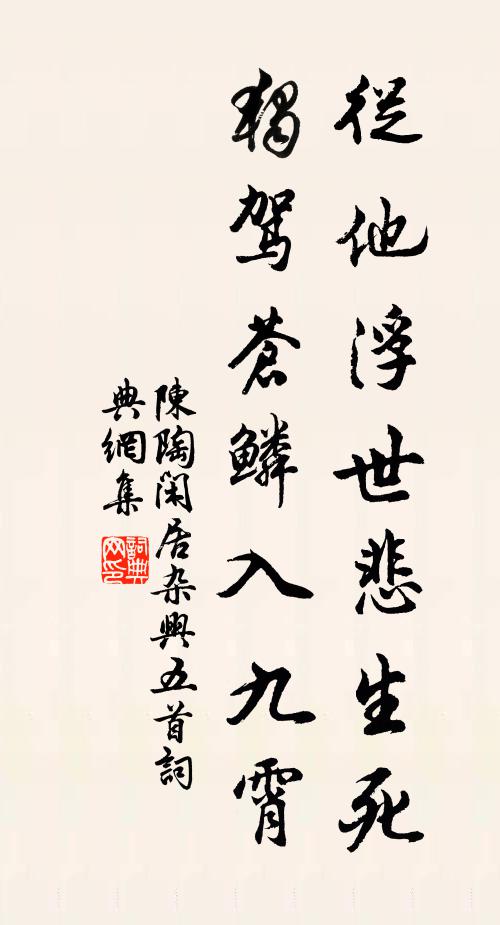 從他浮世悲生死
獨駕蒼鱗入九霄
陳陶閑居杂興五首詞
典網集
詞典
网印